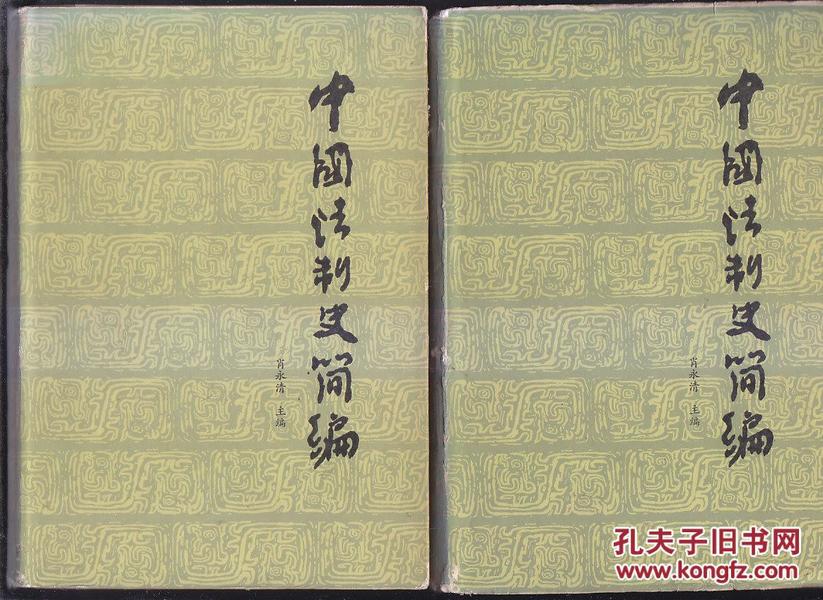 中國法制史简编
肖永清 主编
中國法制史简编
肖永清 主编
孔夫子旧书网
www.kongfz.com